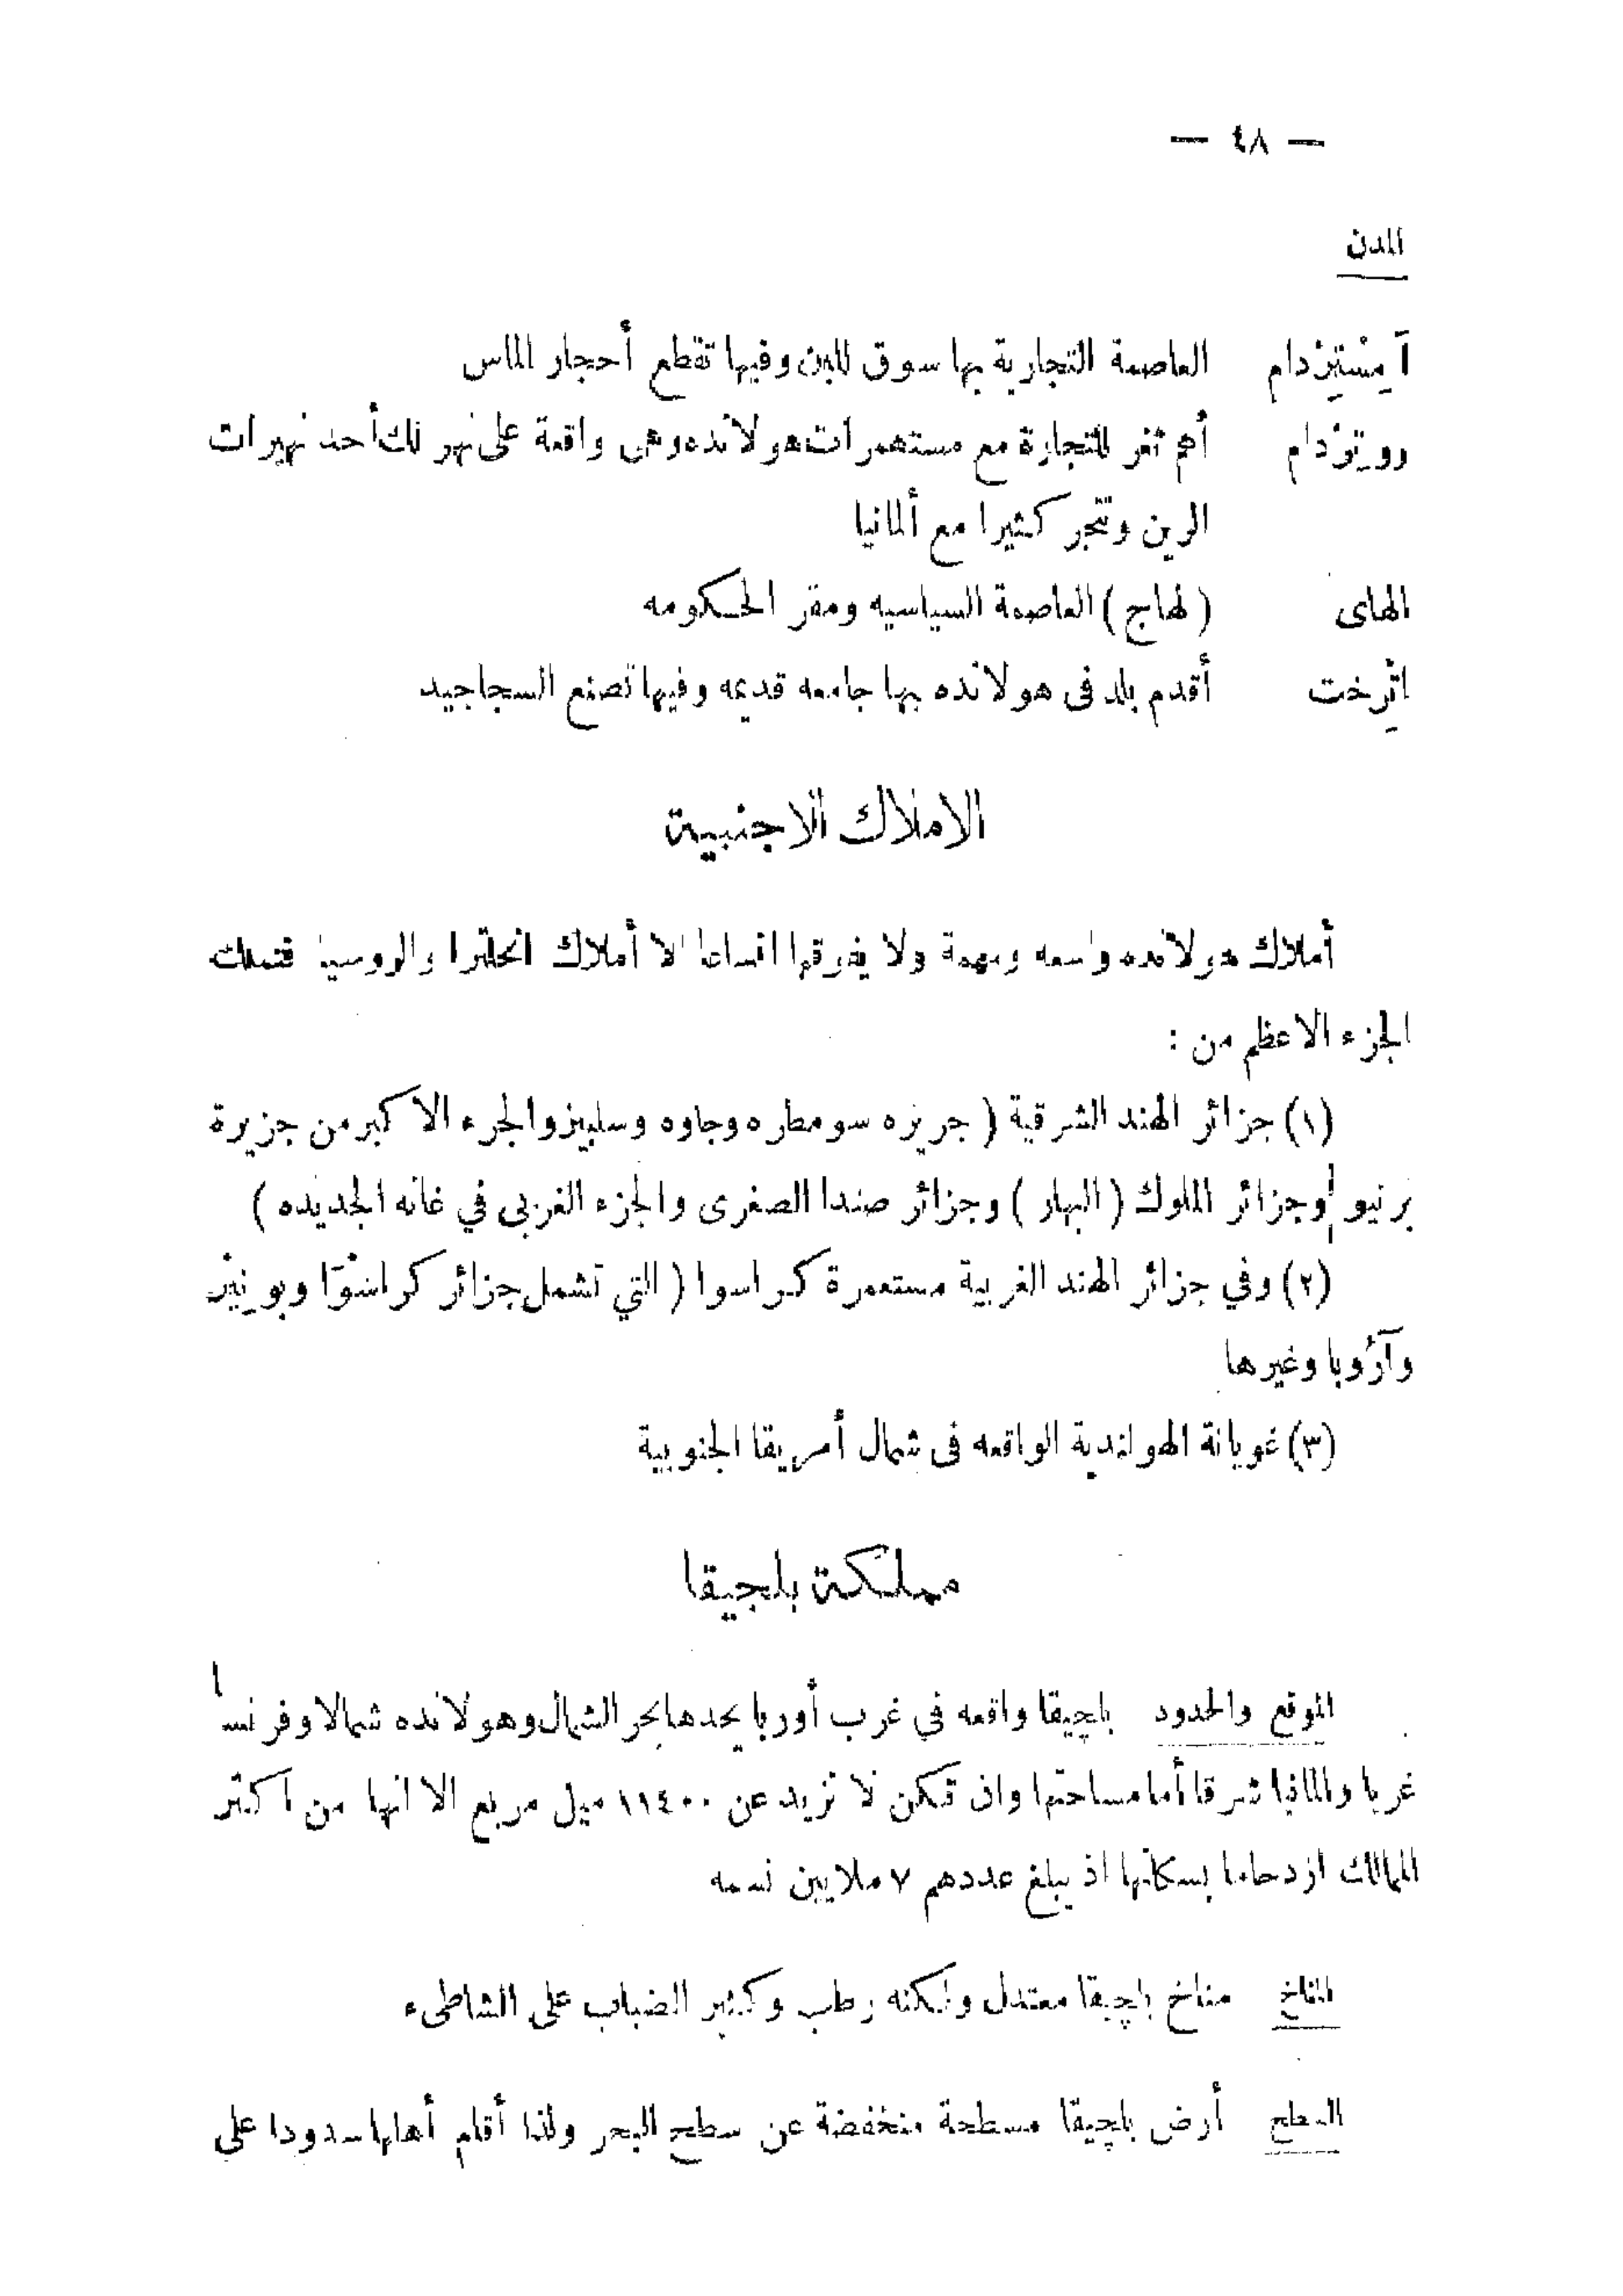 — ٤٨ —
المدن
آمِسْتِرْدام العاصمة التجارية بها سوق للبن وفيها تقطع أحجار الماس
روتِرْدام أهم ثغر للتجارة مع مستعمرات هولانده وهى واقعة على نهر لك أحد نهيرات
الرين وتتجر كثيرا مع ألمانيا
الهاى (لهاج) العاصمة السياسيه ومقر الحكومه
اتْرِخت أقدم بلد فى هولانده بها جامعه قديمه وفيها تصنع السجاجيد
الاملاك الاجنبية
أملاك هولانده واسعه ومهمة ولا يفوقها اتساعا الا أملاك انجلترا والروسيا فتملك
الجزء الاعظم من :
(١) جزائر الهند الشرقية ( جريزه سومطره وجاوه وسلبيز والجزء الاكبر من جزيرة
برنيو وجزائر الملوك ( البهار ) وجزائر صندا الصغرى والجزء الغربى في غانه الجديده )
(٢) وفي جزائر الهند الغربية مستعمرة كراسوا ( التي تشمل جزائر كراسْوَا وبونِيرْ
وآرُوبا وغيرها
(٣) غويانة الهولندية الواقعه فى شمال أمريقا الجنوبية
مملكة بلجيقا
الموقع والحدود بلجيقا واقعه في غرب أوربا يحدها بحر الشمال وهولانده شمالا وفرنسا
غربا والمانيا شرقا أما مساحتها وان تكن لا تزيد عن ١١٤٠٠ ميل مربع الا انها من اكثر
الممالك ازدحاما بسكانها اذ يبلغ عددهم ٧ ملايين نسمه
المناخ مناخ بلچيقا معتدل ولكنه رطب وكثير الضباب على الشاطىء
السطح أرض بلچيقا مسطحة منخفضة عن سطح البحر ولذا أقام أهلها سدودا على